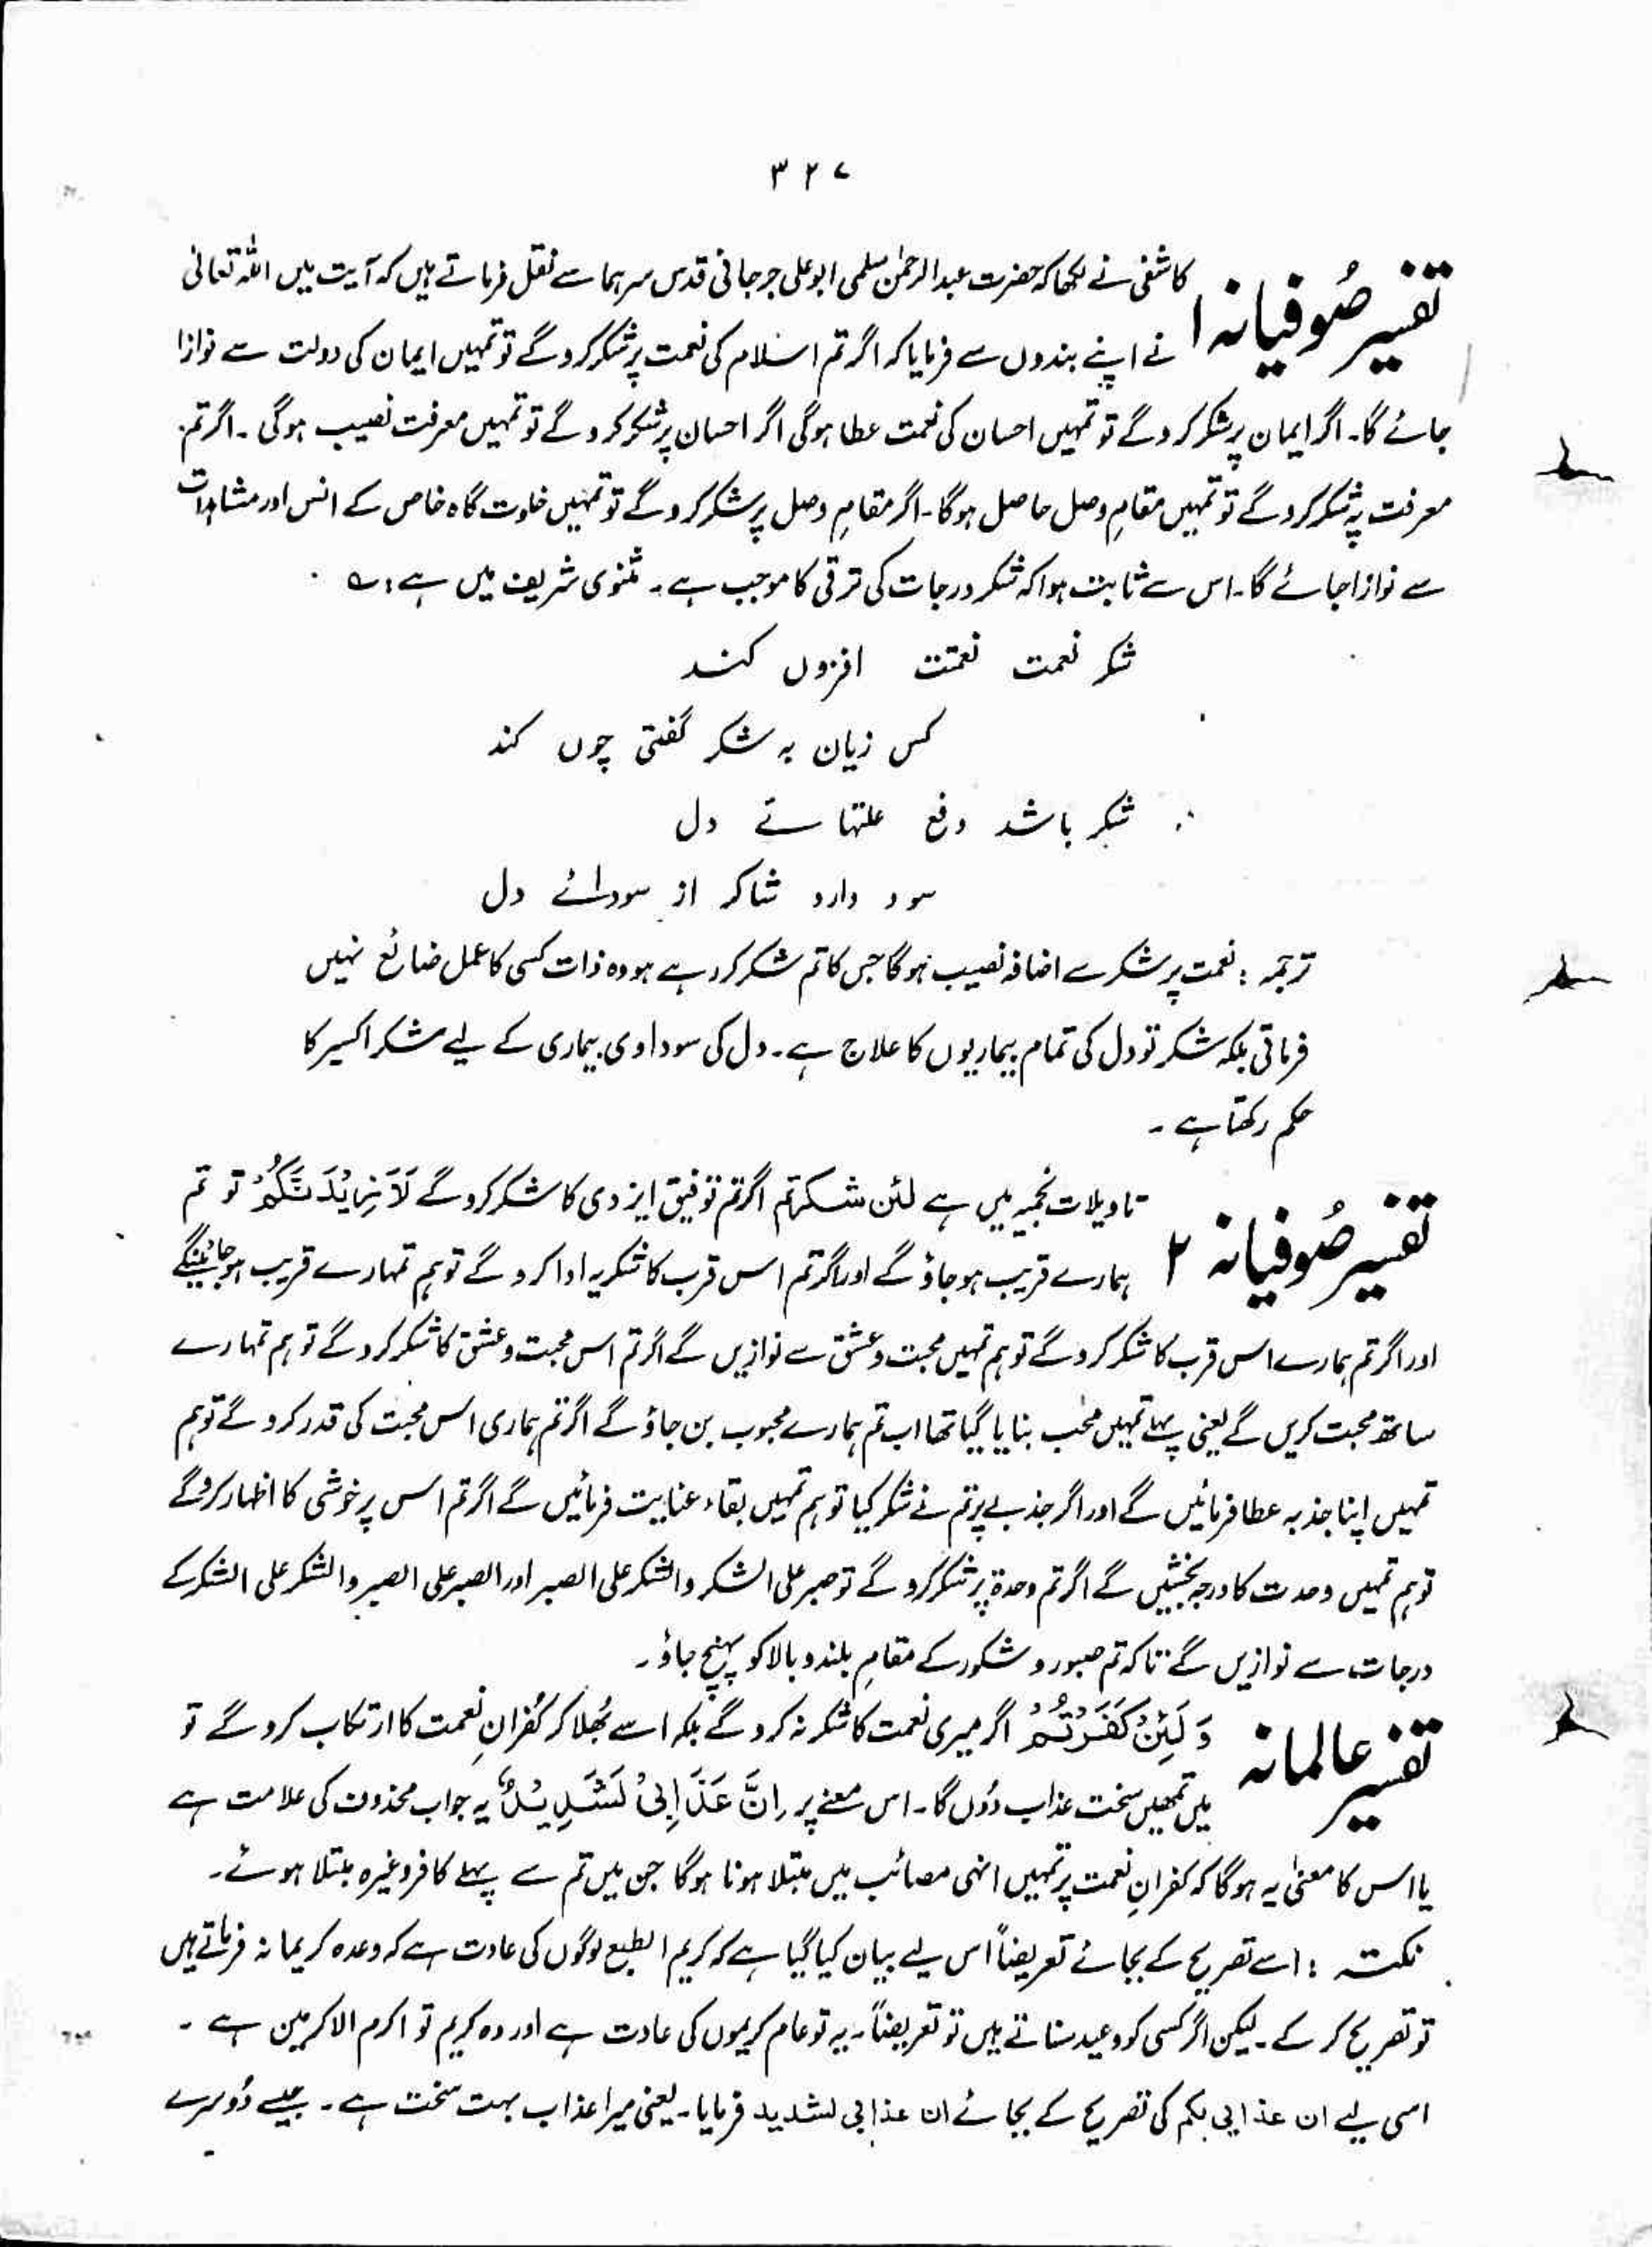 ۳۲۷
تفسیر صُوفیانہ ۱ کاشفی نے لکھا کہ حضرت عبدالرحمٰن سلمی ابوعلی جرجانی قدس سرہما سے نقل فرماتے ہیں کہ آیت میں اللہ تعالیٰ
نے اپنے بندوں سے فرمایا کہ اگر تم اسلام کی نعمت پر شکر کروگے تو تمہیں ایمان کی دولت سے نوازا
جائے گا۔ اگر ایمان پر شکر کروگے تو تمہیں احسان کی نعمت عطا ہوگی اگر احسان پر شکر کروگے تو تمہیں معرفت نصیب ہوگی۔ اگر تم
معرفت پہ شکر کروگے تو تمہیں مقامِ وصل حاصل ہوگا۔ اگر مقامِ وصل پر شکر کروگے تو تمہیں خلوت گاہ خاص کے انس اور مشاہدات
سے نوازا جائے گا۔ اس سے ثابت ہوا کہ شکر درجات کی ترقی کا موجب ہے۔ مثنوی شریف میں ہے: ؎
شکر نعمت نعمتت افزوں کند
کس زیان بہ شکر گفتی چوں کند
شکر باشد دفع علتہائے دل
سود دارد شاکر از سودائے دل
ترجمہ : نعمت پر شکر سے اضافہ نصیب ہوگا جس کا تم شکر کر رہے ہو وہ ذات کسی کا عمل ضائع نہیں
فرماتی بلکہ شکر تو دل کی تمام بیماریوں کا علاج ہے۔ دل کی سوداوی بیماری کے لیے شکر اکسیر کا
حکم رکھتا ہے۔
تفسیر صُوفیانہ ۲ تاویلات نجمیہ میں ہے لئن شکرتم اگر تم توفیق ایزدی کا شکر کروگے لَاَزِیْدَنَّکُمْ تو تم
ہمارے قریب ہو جاؤ گے اور اگر تم اس قرب کا شکریہ ادا کروگے تو ہم تمہارے قریب ہو جائینگے
اور اگر تم ہمارے اس قرب کا شکر کروگے تو ہم تمہیں محبت و عشق سے نوازیں گے اگر تم اس محبت و عشق کا شکر کروگے تو ہم تمہارے
ساتھ محبت کریں گے یعنی پہلے تمہیں محب بنایا گیا تھا اب تم ہمارے محبوب بن جاؤ گے اگر تم ہماری اس محبت کی قدر کروگے تو ہم
تمہیں اپنا جذبہ عطا فرمائیں گے اور اگر جذبے پر تم نے شکر کیا تو ہم تمہیں بقاء عنایت فرمائیں گے اگر تم اس پر خوشی کا اظہار کروگے
تو ہم تمہیں وحدت کا درجہ بخشیں گے اگر تم وحدۃ پر شکر کروگے تو صبر علی الشکر والشکر علی الصبر اور الصبر علی الصبر والشکر علی الشکر کے
درجات سے نوازیں گے تاکہ تم صبور و شکور کے مقامِ بلند و بالا کو پہنچ جاؤ۔
تفسیر عالمانہ وَلَئِنْ کَفَرْتُمْ اگر میری نعمت کا شکر نہ کروگے بلکہ اسے بُھلا کر کُفرانِ نعمت کا ارتکاب کروگے تو
میں تمھیں سخت عذاب دُوں گا۔ اس معنے پر اِنَّ عَذَابِیْ لَشَدِیْدٌ یہ جواب محذوف کی علامت ہے
یا اس کا معنیٰ یہ ہوگا کہ کفرانِ نعمت پر تمہیں انہی مصائب میں مبتلا ہونا ہوگا جن میں تم سے پہلے کافر وغیرہ مبتلا ہوئے۔
نکتہ : اسے تصریح کے بجائے تعریضاً اس لیے بیان کیا گیا ہے کہ کریم الطبع لوگوں کی عادت ہے کہ وعدہ کریمانہ فرماتے ہیں
تو تصریح کر کے۔ لیکن اگر کسی کو وعید سناتے ہیں تو تعریضاً۔ یہ تو عام کریموں کی عادت ہے اور وہ کریم تو اکرم الاکرمین ہے۔
اسی لیے ان عذابی بکم کی تصریح کے بجائے ان عذابی لشدید فرمایا۔ یعنی میرا عذاب بہت سخت ہے۔ جیسے دُوسرے